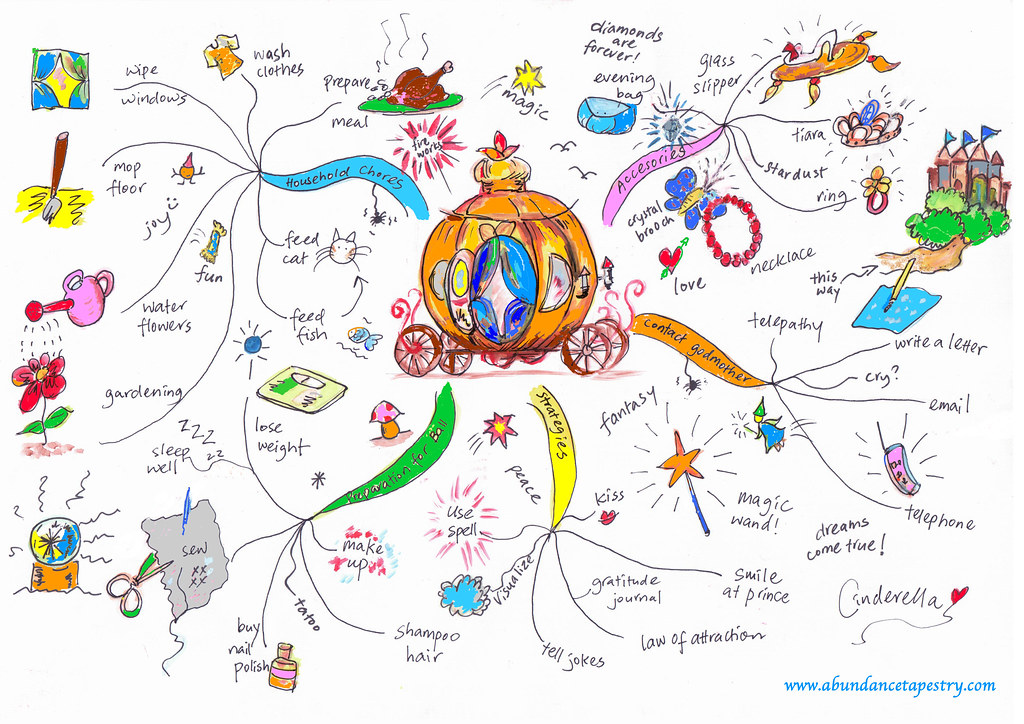 wipe
windows
wash
clothes
prepare
meal
magic
fire
works
Household Chores
mop
floor
joy
fun
feed
cat
feed
fish
water
flowers
gardening
diamonds
are
forever!
evening
bag
glass
slipper
Accesories
tiara
stardust
ring
crystal
brooch
necklace
love
this
way
Contact godmother
telepathy
write a letter
cry?
email
telephone
fantasy
magic
wand!
dreams
come true!
lose
weight
ZZZ
zz
sleep
well
Preparation for Ball
sew
xx
xx
make
up
tatoo
buy
nail
polish
shampoo
hair
Strategies
peace
Use
Spell
kiss
visualize
gratitude
journal
smile
at prince
law of attraction
tell jokes
Cinderella
www.abundancetapestry.com